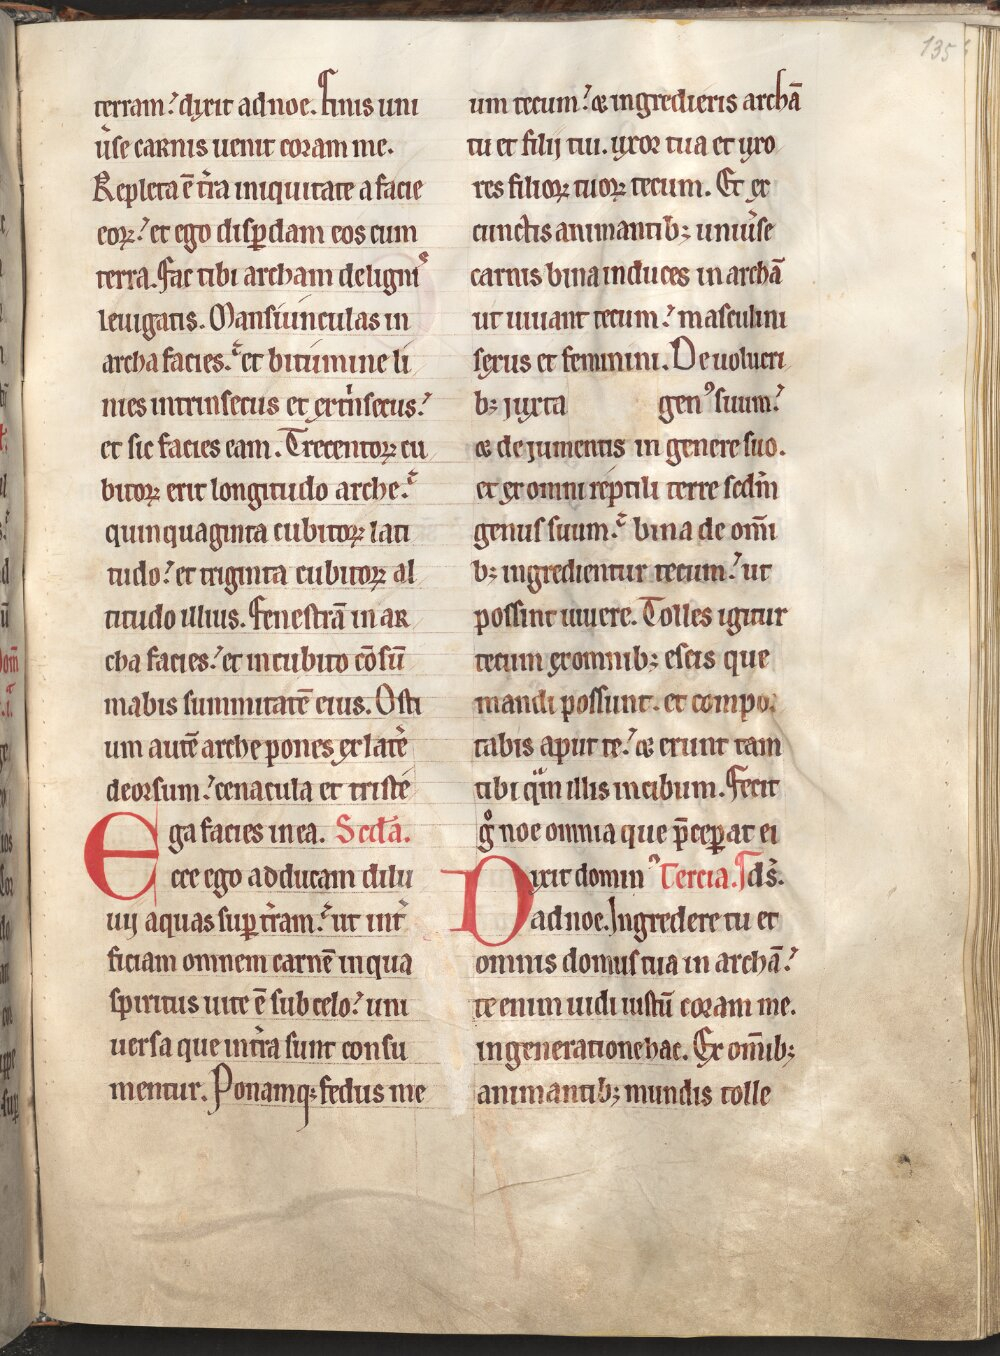 135
terram.᾿ dixit ad noe. Finis uni
ũse carnis uenit coram me.
Repleta ē tr̃a iniquitate a facie
eoꝝ.᾿ et ego disꝑdam eos cum
terra. Fac tibi archam de ligniˢ
leuigatis. Mansiunculas in
archa facies.᾿ et bitumine li
nies intrinsecus et ext̾nsecus.᾿
et sic facies eam. Trecentoꝝ cu
bitoꝝ erit longitudo arche.᾿
quinquaginta cubitoꝝ lati
tudo.᾿ et triginta cubitoꝝ al
titudo illius. Fenestrā in ar
cha facies.᾿ et in cubito cōsū
mabis summitatē eius. Osti
um autē arche pones ex lat̾e
deorsum.᾿ cenacula et tristé
ga facies in ea. Scd̃a.
Ecce ego adducam dilu
uij aquas suꝑ tr̃am.᾿ ut int̾
ficiam omnem carnē in qua
spiritus uite ē sub celo.᾿ uni
uersa que int̾ra sunt consu
mentur. Ponamqꝫ fedus me
um tecum.᾿ & ingredieris archā
tu et filij tui. uxor tua et uxo
res filioꝝ tuoꝝ tecum. Et ex
cunctis animantibꝫ uniũse
carnis bina induces in archā
ut uiuant tecum.᾿ masculini
sexus et feminini. De uolucri
bꝫ juxta genꝰ suum.᾿
& de jumentis in genere suo.
et ex omni reptili terre scdm̃
genus suum.᾿ bina de om̃i
bꝫ ingredientur tecum.᾿ ut
possint uiuere. Tolles igitur
tecum ex omnibꝫ escis que
mandi possunt. et compo.
tabis aput te.᾿ & erunt tam
tibi qͣm illis in cibum. Fecit
gͦ noe omnia que p̄ceꝑat ei
dominꝰ Tercia. ds̃.
Dixit
ad noe. Ingredere tu et
omnis domus tua in archā.᾿
te enim uidi iustū coram me.
in generatione hac. Ex om̃ibꝫ
animantibꝫ mundis tolle